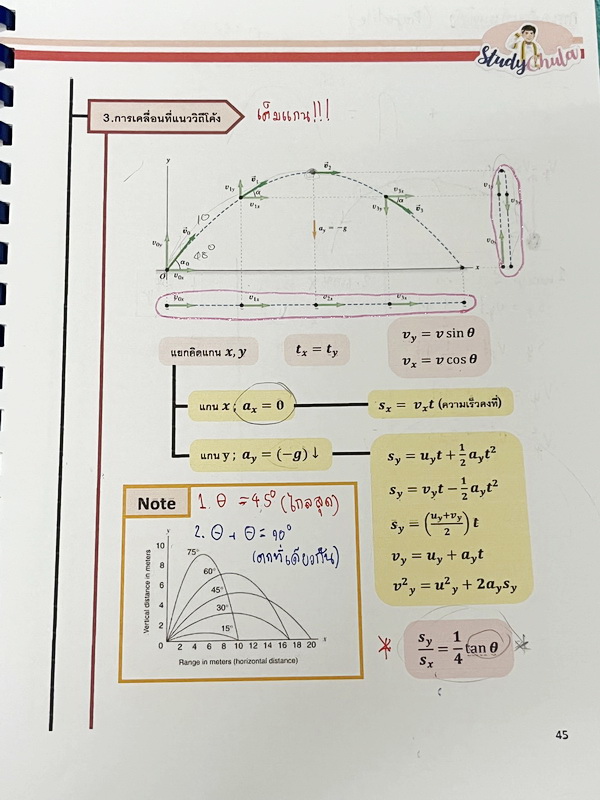 StudyChula
3.การเคลื่อนที่แนววิถีโค้ง
เต็มแกน!!!
y
v₁y v⃗₁ α v₁x
v⃗₂
v₃x α v₃y v⃗₃
10
v₀y v⃗₀ 45° α₀
aᵧ = −g
O v₀x x
v₀x v₁x v₂x v₃x
แยกคิดแกน x, y
tₓ = tᵧ
vᵧ = v sin θ
vₓ = v cos θ
แกน x ; aₓ = 0
sₓ = vₓt (ความเร็วคงที่)
แกน y ; aᵧ = (−g) ↓
sᵧ = uᵧt + ½aᵧt²
sᵧ = vᵧt − ½aᵧt²
sᵧ = ((uᵧ+vᵧ)/2) t
vᵧ = uᵧ + aᵧt
v²ᵧ = u²ᵧ + 2aᵧsᵧ
Note
1. θ = 45° (ไกลสุด)
2. θ + θ = 90°
(ตกที่เดียวกัน)
y
Vertical distance in meters
10
8
6
4
2
0
75°
60°
45°
30°
15°
0 2 4 6 8 10 12 14 16 18 20 x
Range in meters (horizontal distance)
sᵧ/sₓ = 1/4 tan θ
45